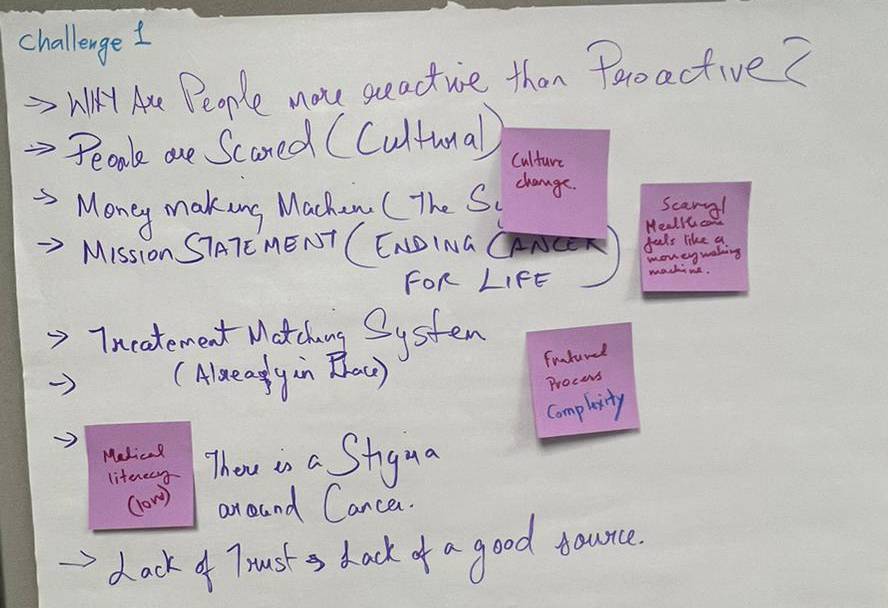 Challenge 1
→ WHY Are People more reactive than Proactive?
→ People are Scared (Cultural)
Culture
change.
→ Money making Machine (The Sy
→ MISSION STATEMENT (ENDING CANCER
FOR LIFE)
Scary/
Healthcare
feels like a
money making
machine.
→ Treatement Matching System
→ (Already in Place)
Process
Complexity
→
Medical
literecy
(low)
There is a Stigma
around Cancer.
→ Lack of Trust & Lack of a good source.